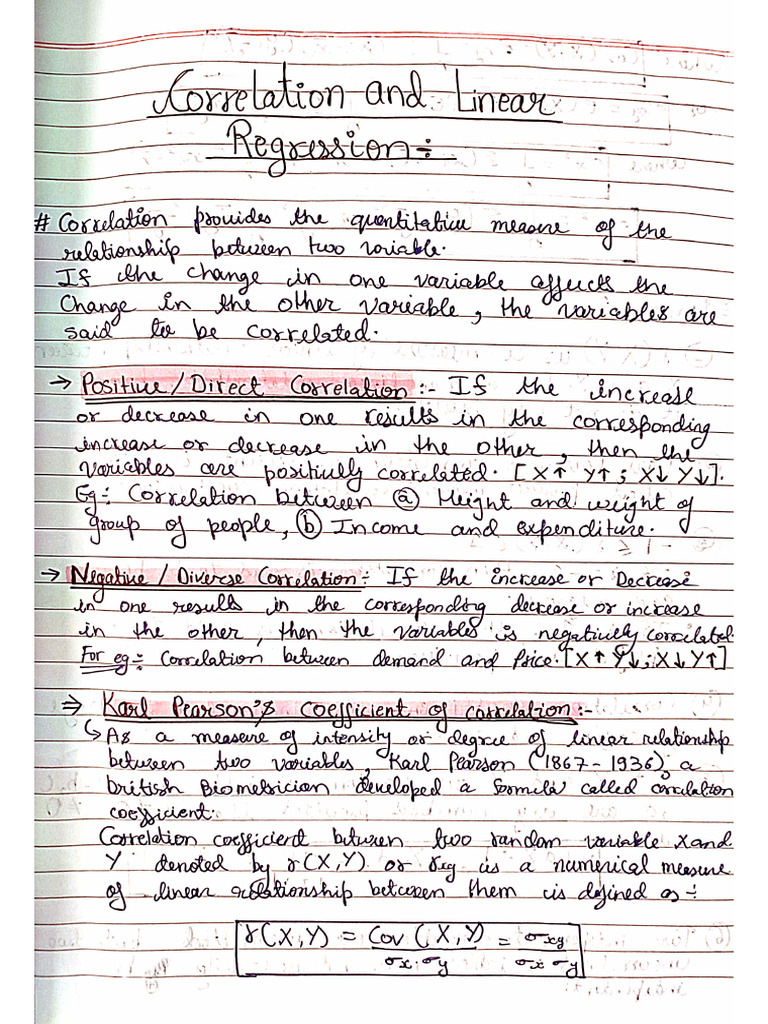 Correlation and Linear
Regression÷
# Correlation provides the quantitative measure of the
relationship between two variable.
If the change in one variable affects the
Change in the other variable, the variables are
said to be correlated.
→ Positive/Direct Correlation:- If the increase
or decrease in one results in the corresponding
increase or decrease in the other, then the
variables are positively correlated. [X↑ Y↑; X↓ Y↓].
Eg÷ Correlation between ⓐ Height and weight of
group of people, ⓑ Income and expenditure.
→ Negative/Diverse Correlation÷ If the increase or Decrease
in one results in the corresponding decrease or increase
in the other, then the variables is negatively correlated.
For eg÷ Correlation between demand and Price.[X↑ Y↓; X↓ Y↑]
⇒ Karl Pearson's coefficient of correlation:-
↳ As a measure of intensity or degree of linear relationship
between two variables, Karl Pearson (1867-1936), a
british Biometrician developed a formula called correlation
coefficient.
Correlation coefficient between two random variable X and
Y denoted by r(X,Y) or rxy is a numerical measure
of linear relationship between them is defined as÷
r(X,Y) = Cov (X,Y) / σx·σy = σxy / σx σy